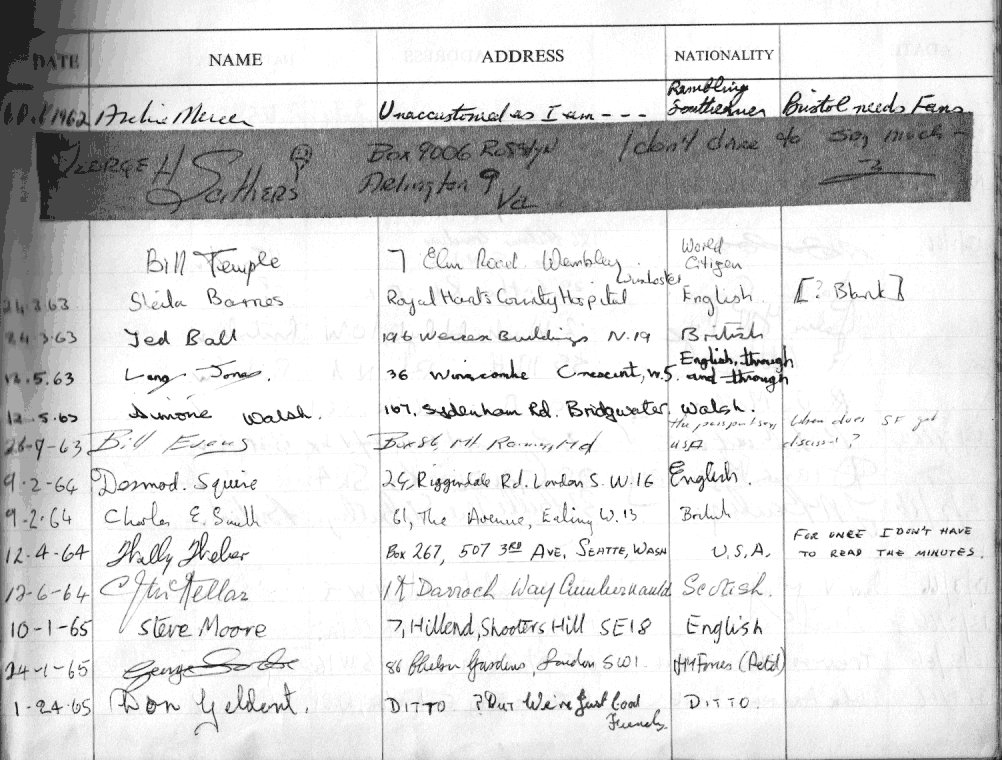 DATE NAME ADDRESS NATIONALITY
1962 Archie Mercer Unaccustomed as I am - - - Rambling Southerner Bristol needs Fans
GEORGE H SCITHERS Box 9006 Rosslyn Arlington 9 Va I don't dare to say much -
Bill Temple 7 Elm Road. Wembley World Citizen
24.3.63 Sheila Barnes Royal Hants County Hospital English. [? Blank]
24.3.63 Ted Ball 196 Wessex Buildings N.19 British
12.5.63 Lang Jones. 36 Winscombe Crescent, W.5. English, through and through
12.5.63 Simone Walsh. 167, Sydenham Rd. Bridgwater. Walsh.
26-9-63 Bill Evans Box 86, Mt Rainier, Md USA When does SF get discussed?
9-2-64 Desmod. Squire 24, Riggindale Rd. London S.W.16 English.
9-2-64 Charles E. Smith 61, The Avenue, Ealing W.13 British
12-4-64 Wally Weber Box 267, 507 3RD Ave, Seattle, Wash U.S.A. FOR ONCE I DON'T HAVE TO READ THE MINUTES.
12-6-64 Darroch Way Cumbernauld Scotish.
10-1-65 Steve Moore 7, Hillend, Shooters Hill SE18 English
24-1-65 George 86 Gardens, London SW1. HM Forces (Retd)
1-24-65 Don Geldart. DITTO ? But We're Just Good Friends DITTO.